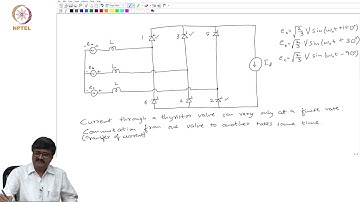 NPTEL
1 3 5
e_a = √(2/3) V sin(ω₀t + 150°)
e_b = √(2/3) V sin(ω₀t + 30°)
e_c = √(2/3) V sin(ω₀t − 90°)
e_a L
e_b L
e_c L
I_d
4 6 2
Current through a thyristor valve can vary only at a finite rate
Commutation from one valve to another takes some time
(transfer of current)